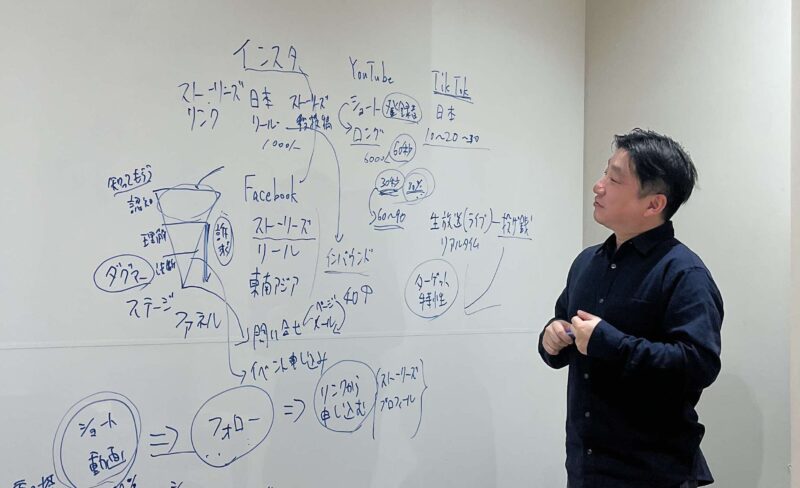 インスタ
ストーリーズ
リンク
日本
リール
1000/-
ストーリーズ
YouTube
ショート
登録者
ロング
6000
60秒
30秒
60〜90
TikTok
日本
10〜20〜30
知ってもらう
認知
理解
決断
訴求
ダグマー
ステージ
ファネル
Facebook
ストーリーズ
リール
東南アジア
インバウンド
生放送(ライブ)ー投げ銭
リアルタイム
ターゲット
特性
ページ
メール
問い合せ
イベント申し込み
ショート
動画
⇒
フォロー
⇒
リンクから
申し込む
ストーリーズ
プロフィール